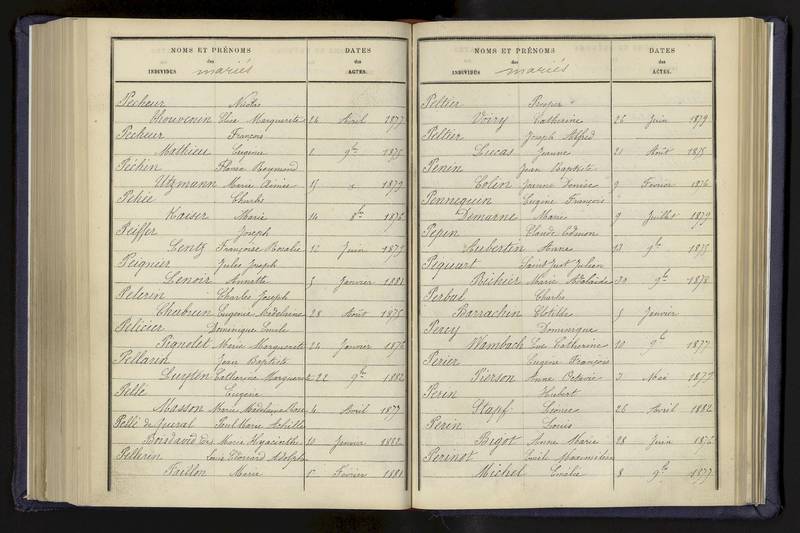 NOMS ET PRÉNOMS DATES
des des
INDIVIDUS mariés ACTES.
Pécheur Nicolas
Thouvenin Elise Marguerite 24 Avril 1877
Pecheur François
Mathieu Eugénie 1 9bre 1875
Péchin Flavien Raymond
Utzmann Marie Aimée 15 1879
Pehée Charles
Kaiser Marie 14 8bre 1876
Peiffer Joseph
Lentz Françoise Rosalie 12 Juin 1879
Peigneur Jules Joseph
Lenoir Annette 5 Janvier 1881
Pelerin Charles Joseph
Cherbuin Eugénie Madeleine 28 Août 1875
Pelicier Dominique Emile
Pignolet Marie Marguerite 24 Janvier 1876
Pellarin Jean Baptiste
Luylon Catherine Marguerite 22 9bre 1882
Pellé Eugène
Masson Marie Madeleine 4 Avril 1877
Pellé de Quéral Paul Marie Achille
Boisdavid Marie Hyacinthe 10 Janvier 1882
Pellerin Louis Edouard Adolphe
Faillon Marie 5 Février 1881
NOMS ET PRÉNOMS DATES
des des
INDIVIDUS mariés ACTES.
Peltier Prosper
Voiry Catherine 26 Juin 1879
Peltier Joseph Alfred
Lucas Jeanne 21 Août 1875
Penin Jean Baptiste
Colin Jeanne Denise 9 Février 1876
Pennequin Eugène François
Demarne Marie 9 Juillet 1879
Pepin Claude Edmon
Hubertin Anne 13 9bre 1875
Pequart Saint Just Julien
Büthier Marie Adélaïde 30 9bre 1878
Perbal Charles
Barrachin Clotilde 5 Janvier
Percy Dominique
Wambach Eve Catherine 10 9bre 1877
Perier Eugène François
Pierson Anne Octavie 3 Mai 1879
Perin Hubert
Stapf Léonie 26 Avril 1882
Perin Louis
Bigot Anne Marie 28 Juin 1876
Perinot Emile Maximilien
Michel Emilie 8 9bre 1877